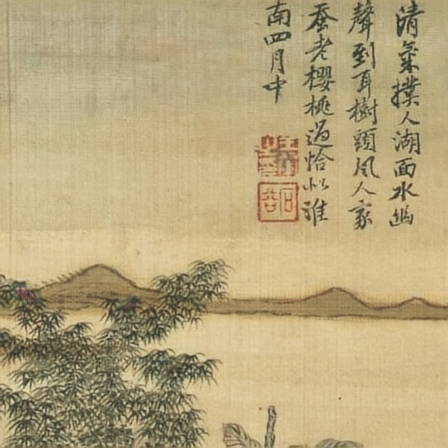 清氣撲人湖面水幽
聲到耳樹頭風人家
蚕老櫻桃過恰似淮
南四月中